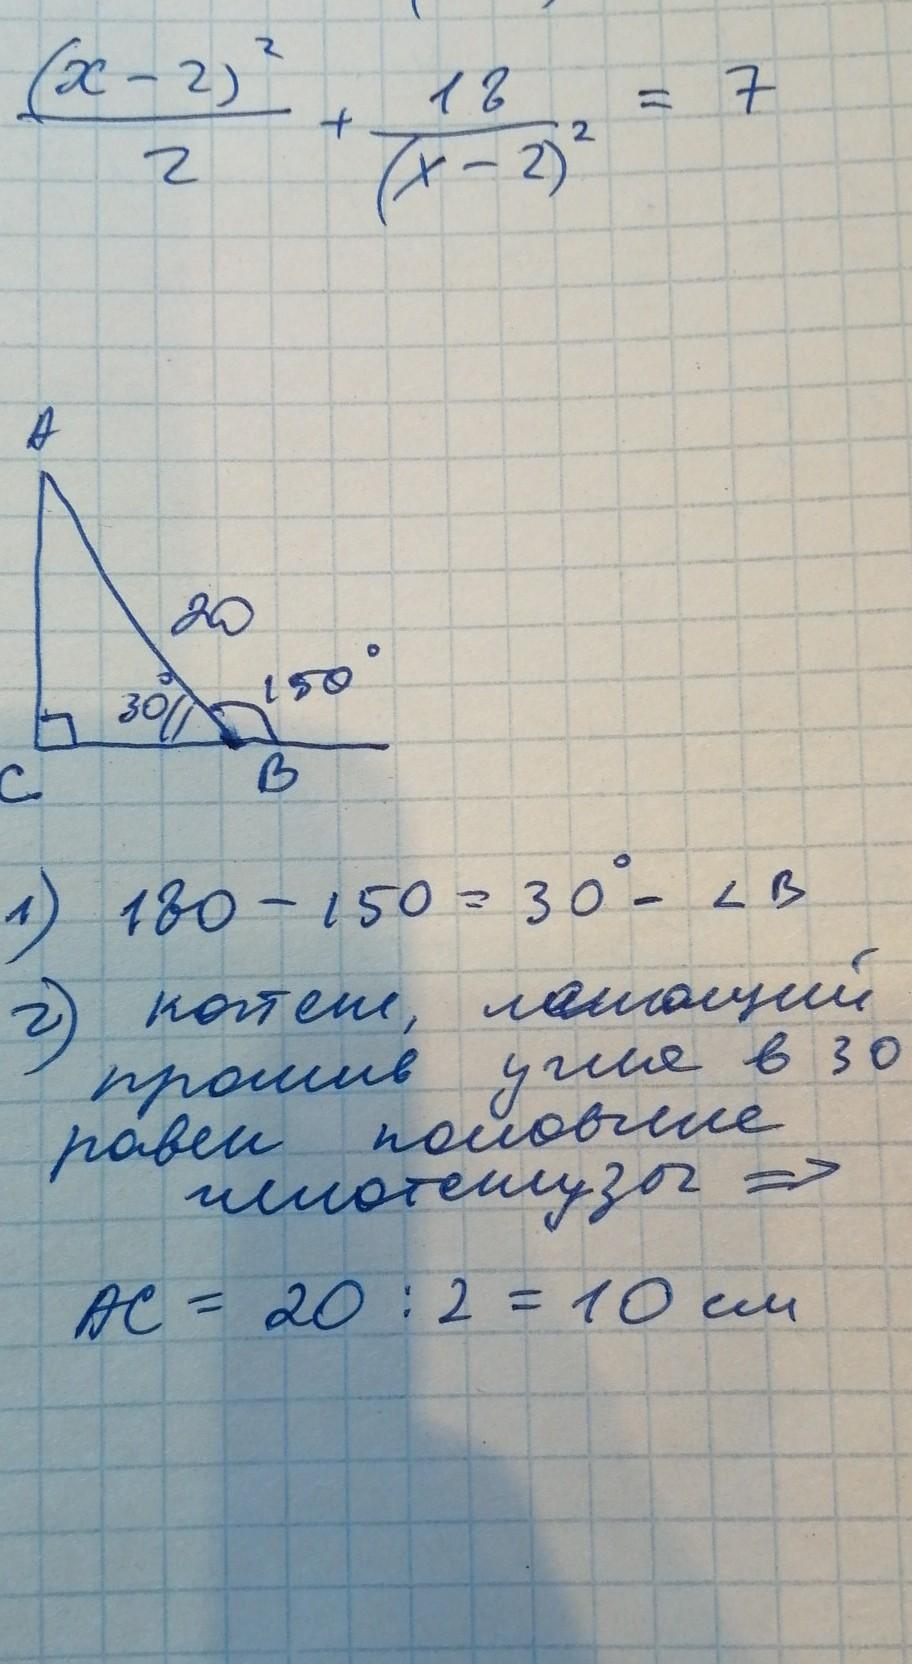 (x - 2)² / 2 + 18 / (x - 2)² = 7
A
20
30°
150°
C
B
1) 180 - 150 = 30° - ∠B
2) катет, лежащий
против угла в 30
равен половине
гипотенузы ⇒
AC = 20 : 2 = 10 см